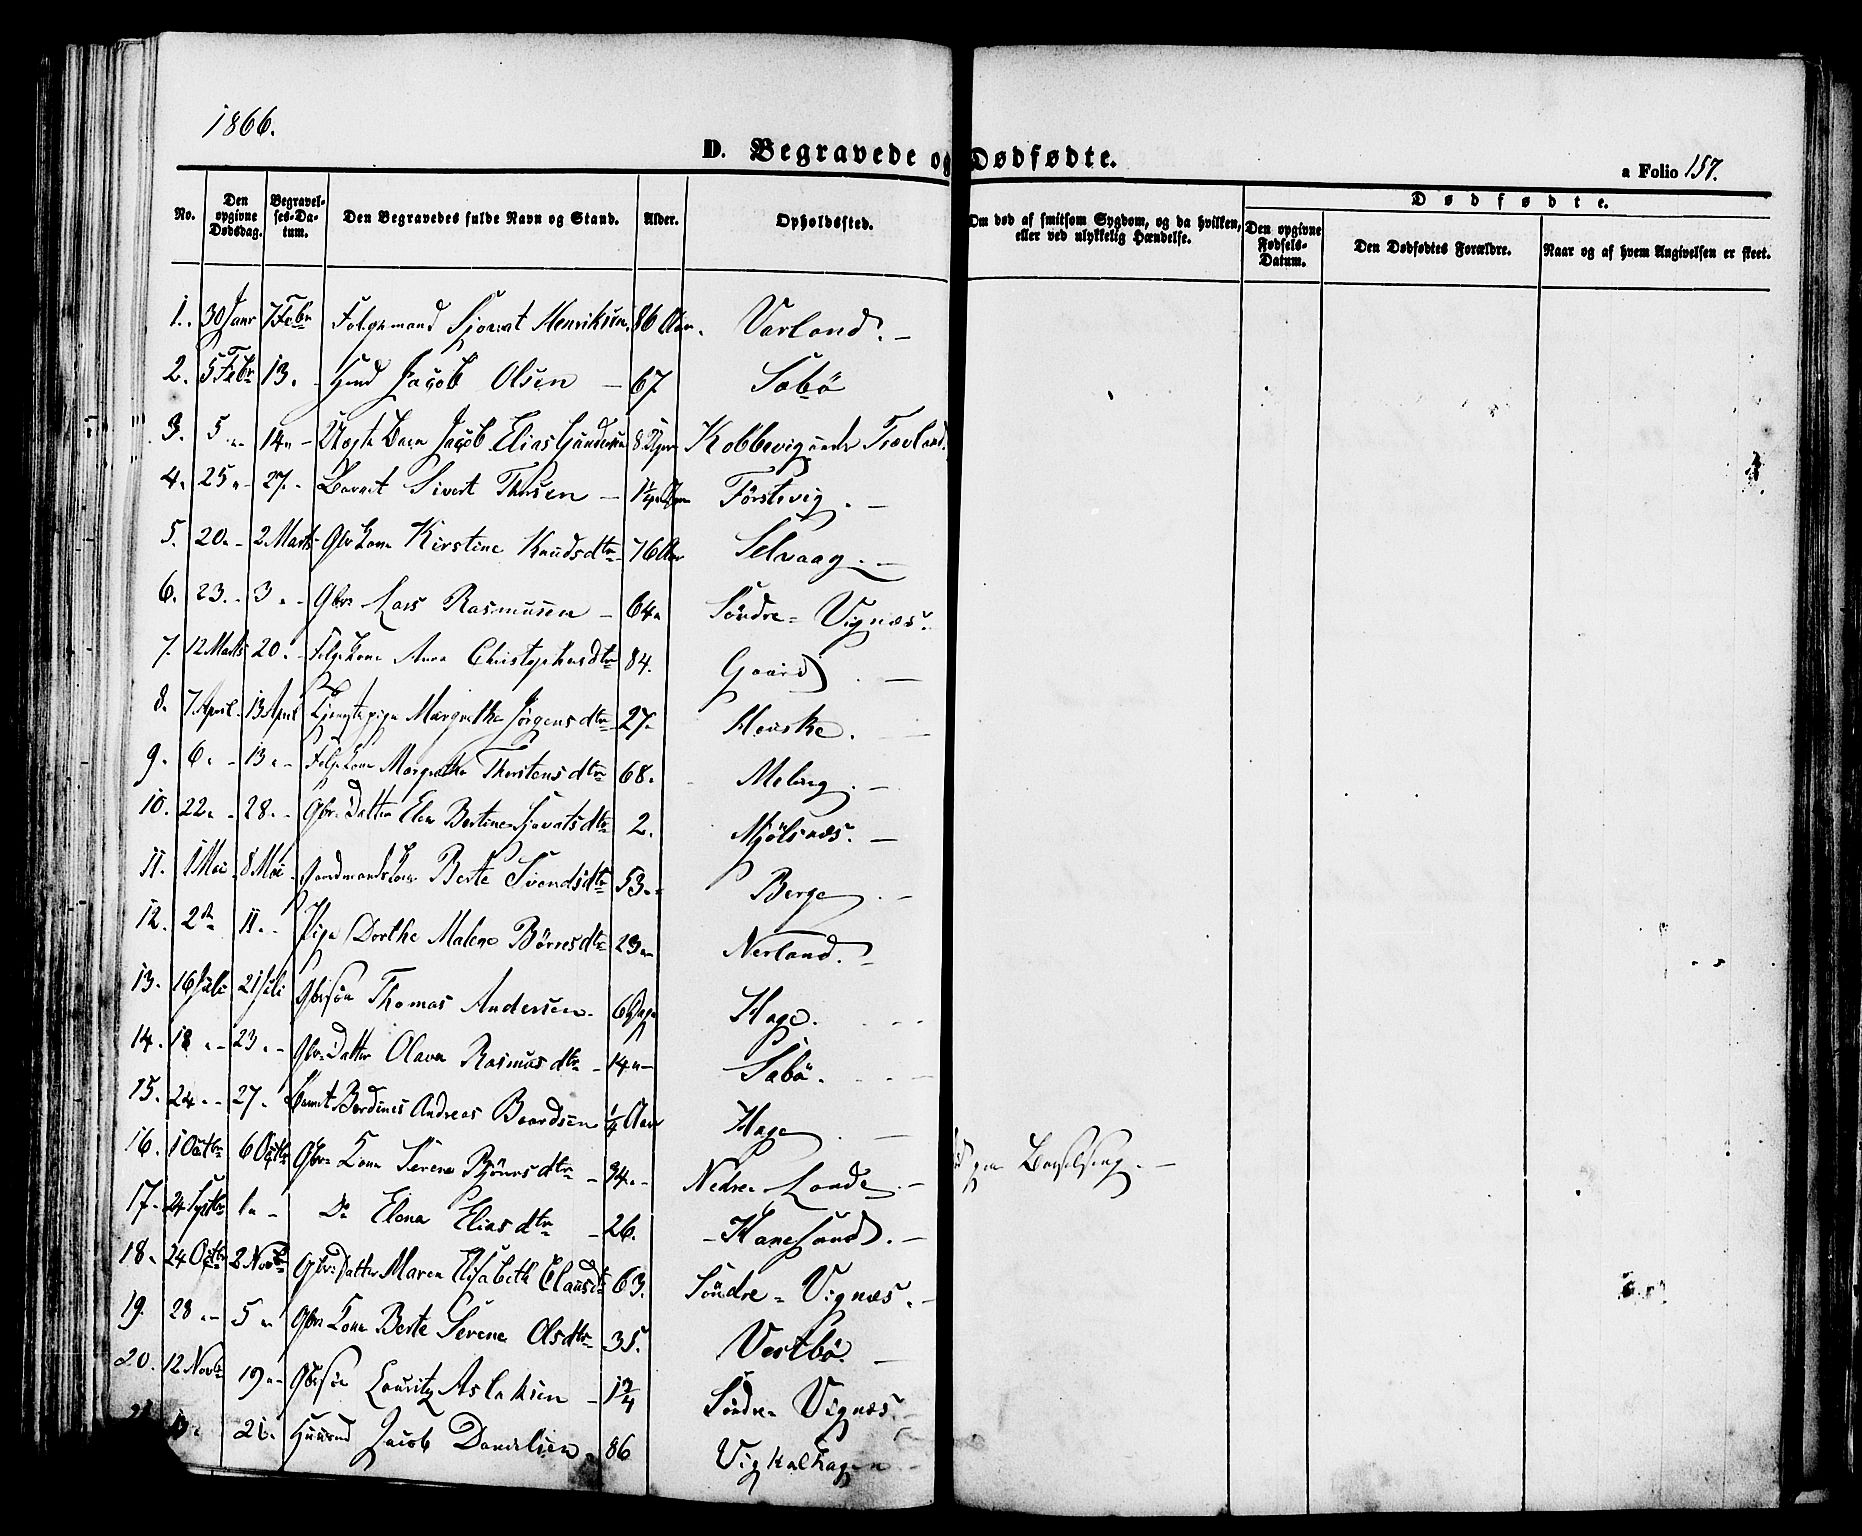 1866.
D. Begravede og Dødfødte.
a Folio 157.
No. Den opgivne Dødsdag. Begravelses-Datum. Den Begravedes fulde Navn og Stand. Alder. Opholdssted. Om død af smitsom Sygdom, og da hvilken, eller ved ulykkelig Hændelse. Dødfødte. Den opgivne Fødsels-Datum. Den Dødfødtes Forældre. Naar og af hvem Angivelsen er skeet.
1. 30 Janr 7 Febr Folgemand Sjovat Henriksen 86 Aar. Varland. -
2. 5 Febr 13. - Hmd Jacob Olsen - 67 Sæbö
3. 5 " 14 " - Uægte Barn Jacob Elias Gundersen 8 Uger Kobbevig under Trævland.
4. 25 " - 27. - Barnet Sivert Thorsen - Förstevig. -
5. 20. - 2 Marts Gbr Kone Kirstine Knudsdtr 76 Aar Selvaag. -
6. 23. - 3 " - Gbr Lars Rasmusen - 64 " Söndre = Vignæs.
7. 12 Marts 20. - Folge Kone Anna Christophersdtr 84. Gaard. -
8. 7 April 13 April Tjenestepige Margrethe Jörgensdtr 27. Heuske. -
9. 6. - 13. - Folge Kone Margrethe Thorstensdtr 68. Meling. -
10. 22. - 28. - Gbr. Datter Elen Bertine Sjovatsdtr 2. Mjölsnæs. -
11. 1 Mai 8 Mai Gaardmandskone Berte Svendsdtr 53. Berge. -
12. 2 d 11. - Pige Dorthe Malene Börresdtr 23 Nerland. -
13. 16 Juli 21 Juli Gbr søn Thomas Andersen. 6 Dage Hage.
14. 18 " - 23 " - Gbr. Datter Olava Rasmusdtr - 14 " - Sæbö.
15. 24. - 27. Barnet Berdines Andreas Baardsen 1/4 Aar Hage. -
16. 1 Octbr 6 Octbr Gbr Kone Serene Bjönrsdtr - 34. - Nedre Lande. - paa Barselseng. -
17. 24 Septbr 1. - Do Elena Eliasdtr - 26. - Hanesund. -
18. 24 Octbr 2 Novbr Gbr. Datter Maren Elisabeth Clausdtr 63. Söndre = Vignæs. -
19. 28 " - 5 " Gbr Kone Berte Serene Olsdtr 35. Vestbö. -
20. 12 Novbr 19 " - Gbr søn Lauritz Aslaksen - 1 3/4 Söndre Vignæs. -
21. 21. Huusmd Jacob Danielsen 86 Vigkalhagen -